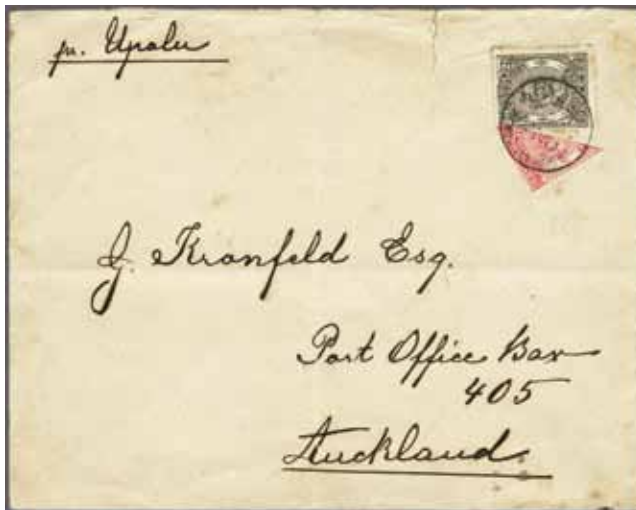 pr. Upolu
G. Kronfeld Esq.
Post Office Box
405
Auckland